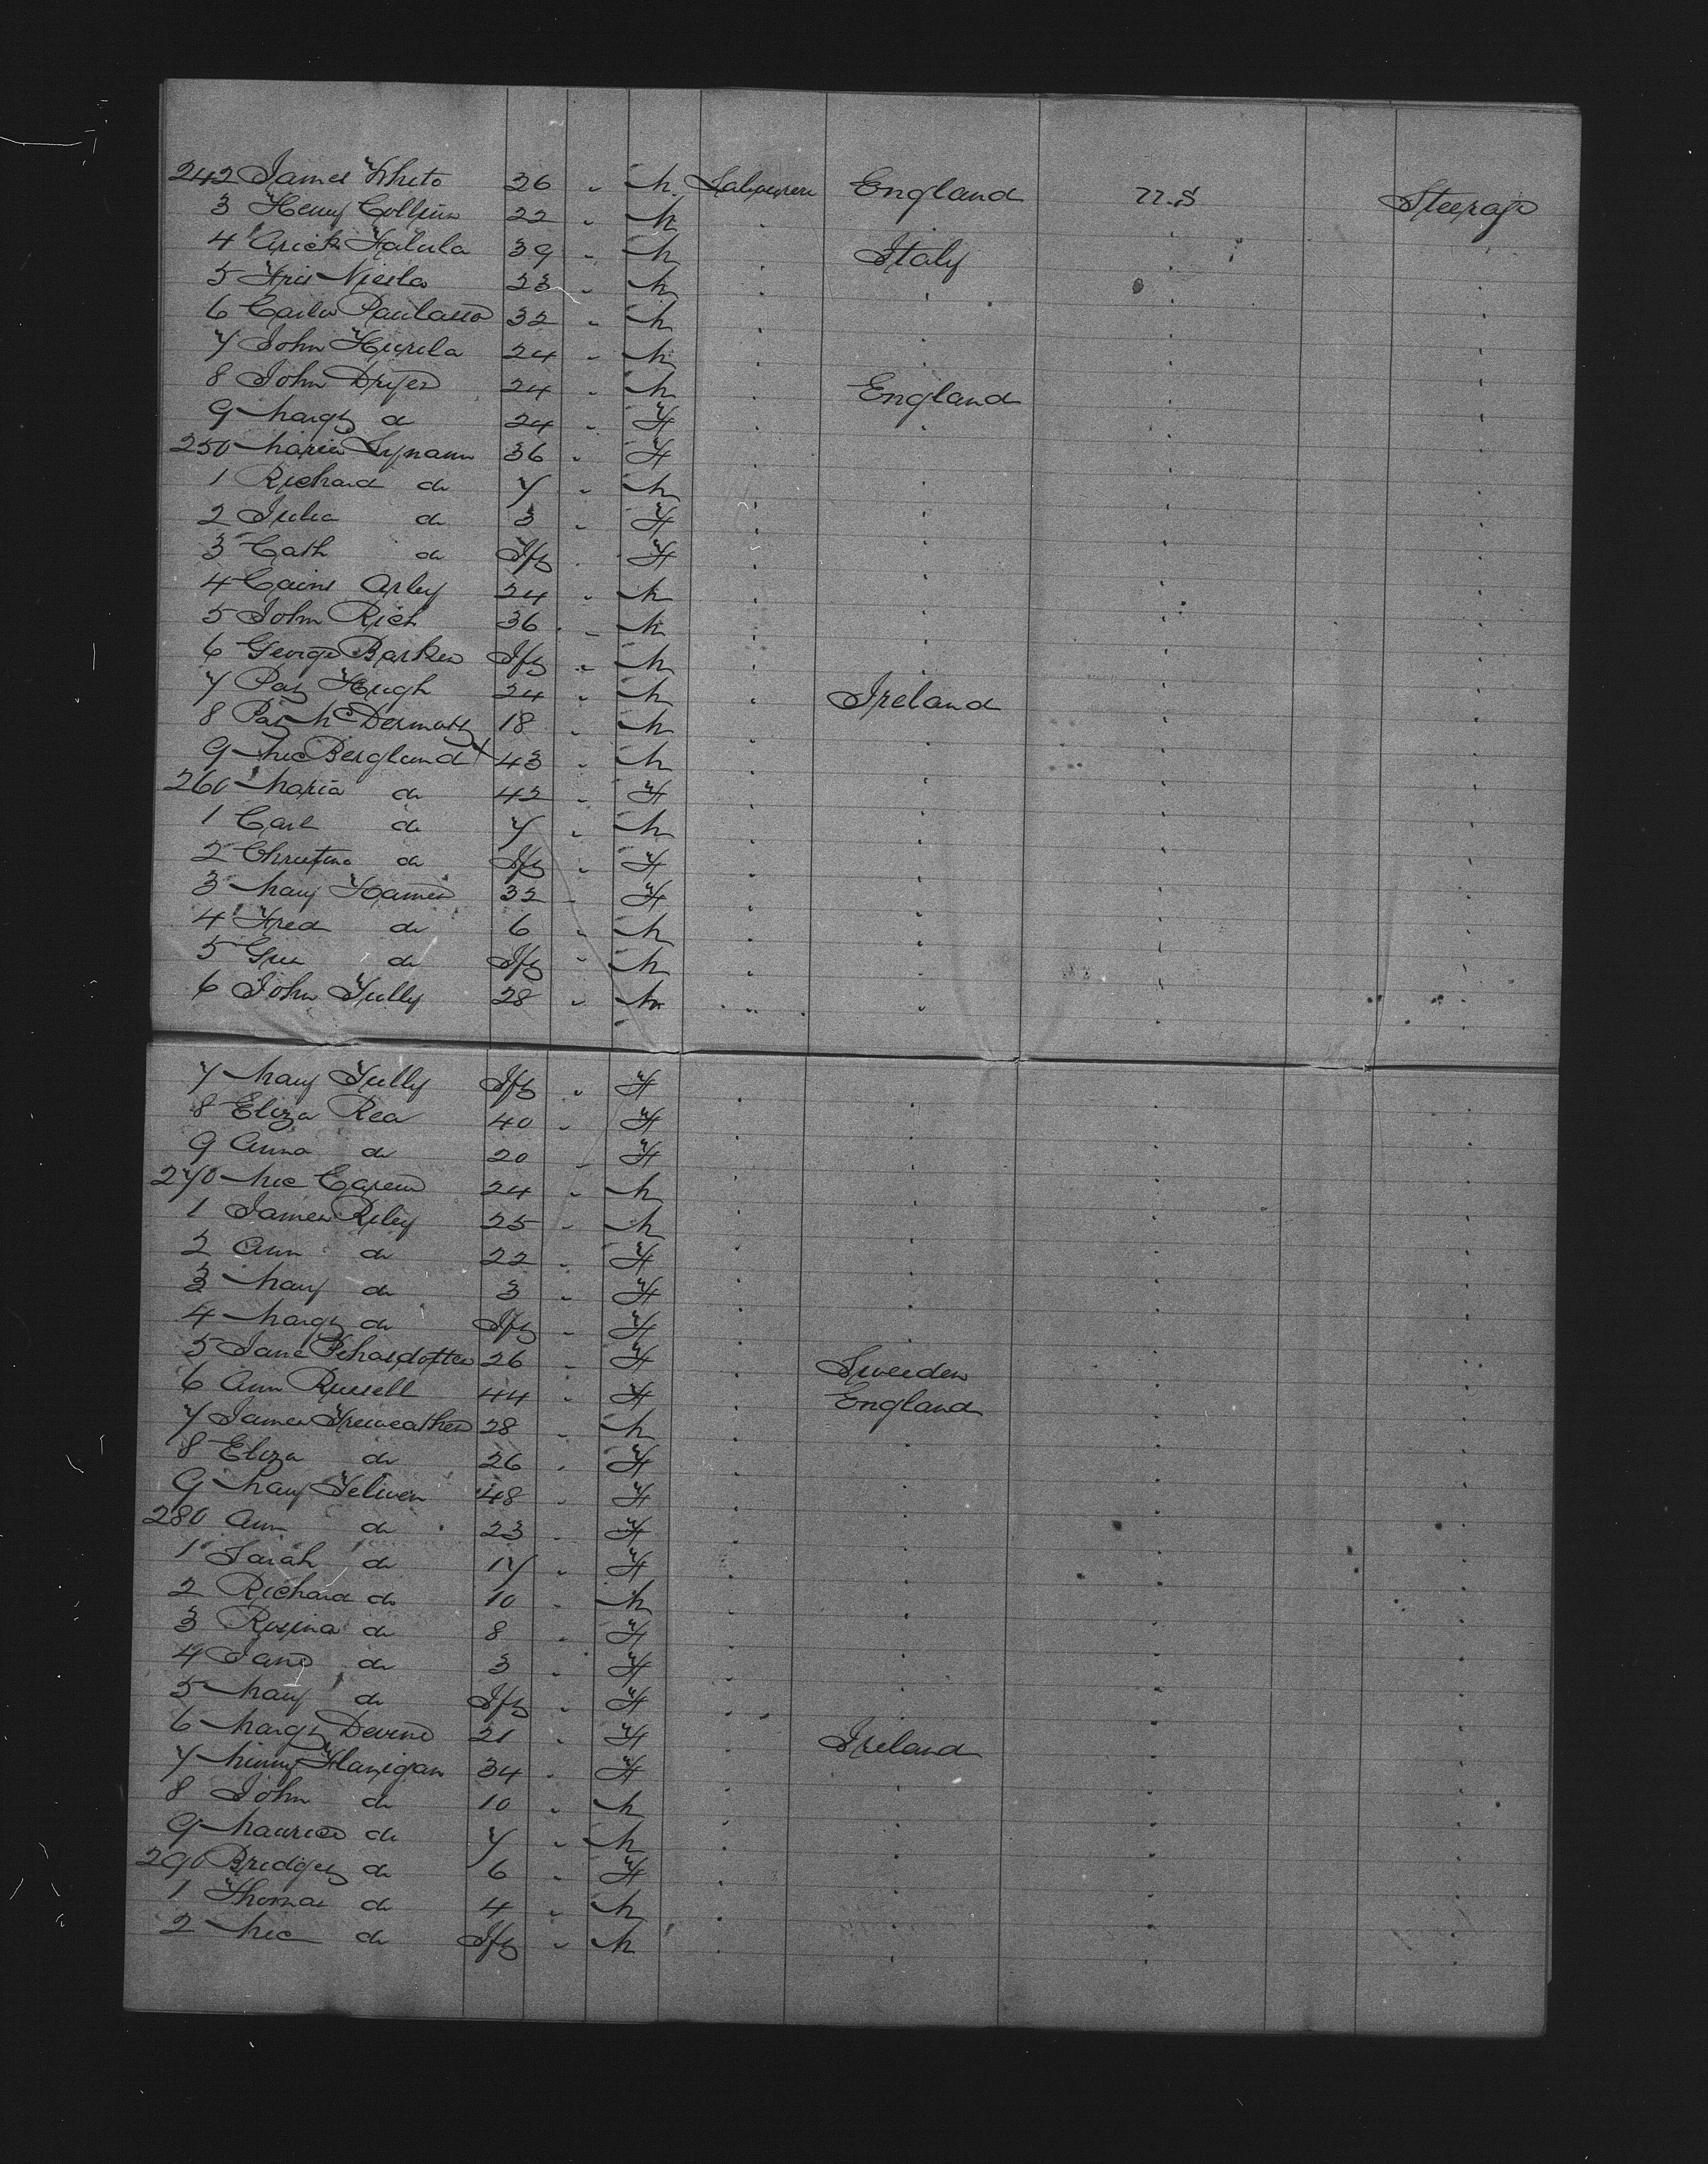 242 James White 36 " M Labourer England U.S Steerage
3 Henry Collins 22 " M " " " "
4 39 " M " Italy " "
5 23 " M " " " "
6 Carlo 32 " M " " " "
7 John 24 " M " " " "
8 John Dryer 24 " M " England " "
9 Margt do 24 " F " " " "
250 Maria 36 " F " " " "
1 Richard do 7 " M " " " "
2 Julia do 3 " F " " " "
3 Cath do Inft " F " " " "
4 Arley 24 " M " " " "
5 John Rich 36 " M " " " "
6 George Barker Inft " M " " " "
7 Pat Hugh 24 " M " Ireland " "
8 Pat McDermott 18 " M " " " "
9 Mic Berglund 43 " M " " " "
260 Maria do 42 " F " " " "
1 Carl do 7 " M " " " "
2 Christina do Inft " F " " " "
3 Mary 32 " F " " " "
4 Fred do 6 " M " " " "
5 do Inft " M " " " "
6 John Tully 28 " M " " " "
7 Mary Tully Inft " F " " " "
8 Eliza Rea 40 " F " " " "
9 Anna do 20 " F " " " "
270 Mic 24 " M " " " "
1 James Riley 25 " M " " " "
2 Ann do 22 " F " " " "
3 Mary do 3 " F " " " "
4 Margt do Inft " F " " " "
5 Jane 26 " F " Sweden " "
6 Ann Russell 44 " F " England " "
7 James 28 " M " " " "
8 Eliza do 26 " F " " " "
9 Mary 48 " F " " " "
280 Ann do 23 " F " " " "
1 Sarah do 17 " F " " " "
2 Richard do 10 " M " " " "
3 Rosina do 8 " F " " " "
4 Jane do 3 " F " " " "
5 Mary do Inft " F " " " "
6 Margt Devine 21 " F " Ireland " "
7 Minny Flanigan 34 " F " " " "
8 John do 10 " M " " " "
9 Maurice do 7 " M " " " "
290 Bridget do 6 " F " " " "
1 Thomas do 4 " M " " " "
2 Mic do Inft " M " " " "